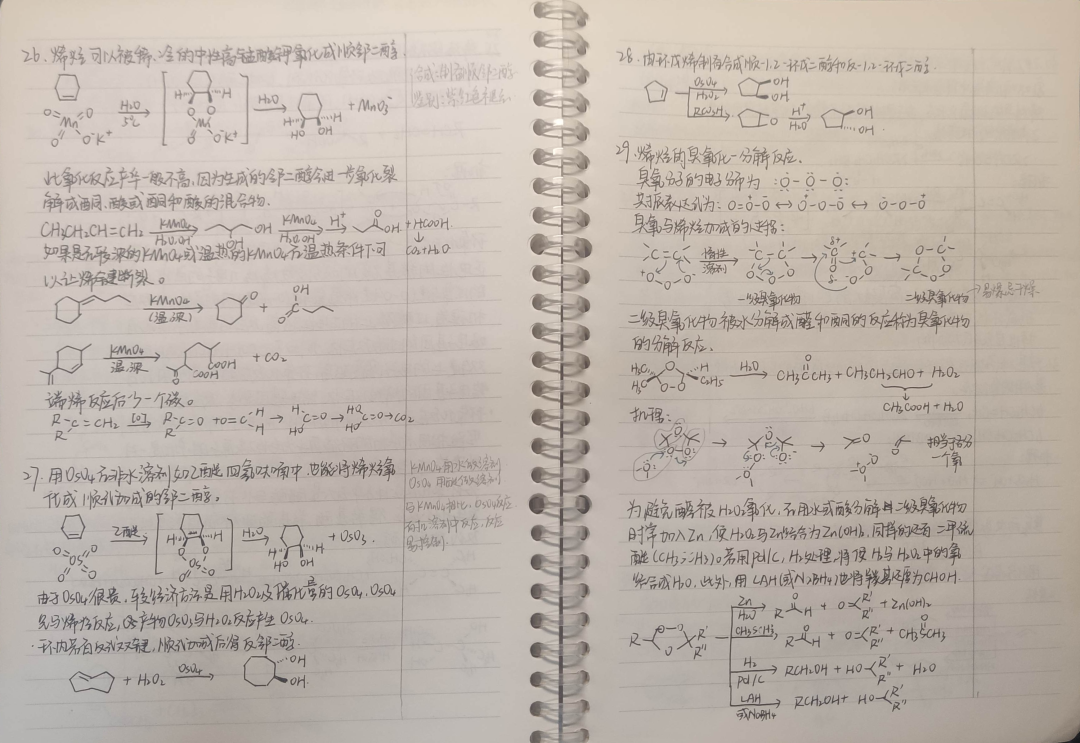 26. 烯烃可以被稀、冷的中性高锰酸钾氧化成顺邻二醇
合成:制备顺邻二醇
鉴别:紫红色不褪色
H₂O
5℃
H₂O
+ MnO₃⁻
此氧化反应产率一般不高,因为生成的邻二醇会进一步氧化裂
解成酮、酸或酮和酸的混合物.
CH₃CH₂CH=CH₂ KMnO₄ H₂O,OH OH KMnO₄ H₂O,OH H⁺ OH + HCOOH
CO₂+H₂O
如果是用较浓的KMnO₄或温热的KMnO₄在温热条件下可
以让烯键断裂。
KMnO₄
(温,浓)
O + OH
KMnO₄
温,浓
COOH
COOH
+ CO₂
端烯反应后少一个碳。
R R C=CH₂ [O] R R C=O + O=C H H → H HO C=O → HO HO C=O → CO₂
27. 用OsO₄在非水溶剂如乙醚、四氢呋喃中,也能将烯烃氧
化成顺式加成的邻二醇。
KMnO₄用水做溶剂
OsO₄用醚做溶剂.
与KMnO₄相比,OsO₄反应
在有机溶剂中反应,反应
易控制.
乙醚
H₂O
+ OsO₃.
由于OsO₄很贵,较经济方法是用H₂O₂及催化量的OsO₄.OsO₄
先与烯烃反应,产物OsO₃与H₂O₂反应产生OsO₄.
·环内若有反式双键,顺式加成后得反邻二醇.
+ H₂O₂ OsO₄ OH OH.
28. 由环戊烯制备合成顺-1,2-环戊二醇和反-1,2-环戊二醇.
OsO₄
H₂O₂
OH
OH
RCO₃H
O
H⁺
H₂O
OH
OH.
29. 烯烃的臭氧化-分解反应.
臭氧分子的电子分布为 :O-O-O:
共振表达式为: O=O-O ↔ O-O-O ↔ O-O-O
臭氧与烯烃加成的过程:
惰性
溶剂
一级臭氧化物
二级臭氧化物
→易爆忌干燥.
二级臭氧化物被水分解成醛和酮的反应称为臭氧化物
的分解反应.
H₃C H₃C O O-O H C₂H₅ H₂O CH₃CCH₃ + CH₃CH₂CHO + H₂O₂
CH₃COOH + H₂O
机理:
相当于各分
一个氧
为避免醛被H₂O₂氧化,在用水或酸分解二级臭氧化物
时常加入Zn,使H₂O₂与Zn结合为Zn(OH)₂.同样的还有二甲硫
醚(CH₃SCH₃)。若用Pd/C,H₂处理,将使H₂与H₂O₂中的氧
结合成H₂O.此外,用LAH(或NaBH₄)也将羰基还原为CHOH.
R O O-O R' R''
Zn
H₂O
R H + O R' R'' + Zn(OH)₂
CH₃SCH₃
R H + O R' R'' + CH₃SCH₃
H₂
Pd/C
RCH₂OH + HO R' R'' + H₂O
LAH
或NaBH₄
RCH₂OH + HO R' R''